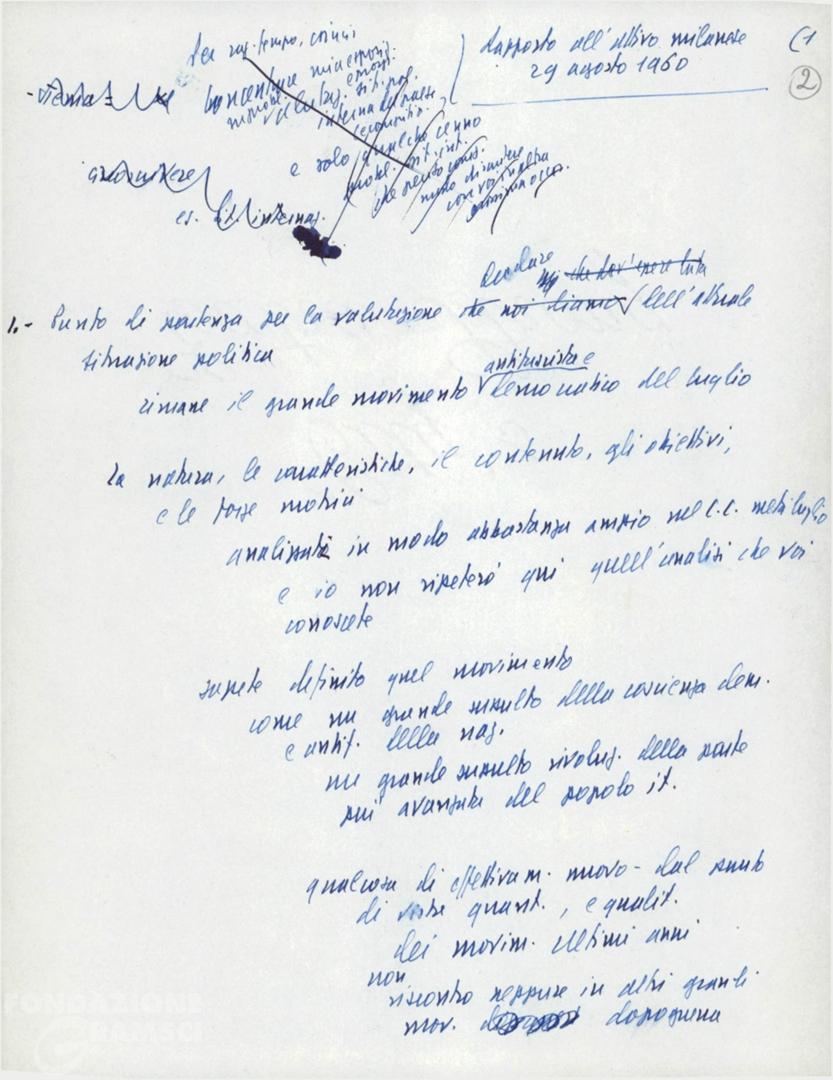 Per rag. tempo, comizi
Rapporto all'attivo milanese
29 agosto 1960
(1
2
concentrare mia espos.
valutaz.
interna del paese
e solo qualche cenno
sit. int.
es. sit. internaz.
1.- Punto di partenza per la valutazione che noi diamo dell'attuale
che dov'essere fatta
situazione politica
rimane il grande movimento antifascista e democratico del luglio
la natura, le caratteristiche, il contenuto, gli obiettivi,
e le forze motrici
analizzati in modo abbastanza ampio nel C.C. metà luglio
e io non ripeterò qui quell'analisi che voi
conoscete
sapete definito quel movimento
come un grande sussulto della coscienza dem.
e antif. della naz.
un grande sussulto rivoluz. della parte
più avanzata del popolo it.
qualcosa di effettivam. nuovo - dal punto
di vista quant., e qualit.
dei movim. ultimi anni
non
riscontro neppure in altri grandi
mov. dopoguerra
FONDAZIONE
GRAMSCI